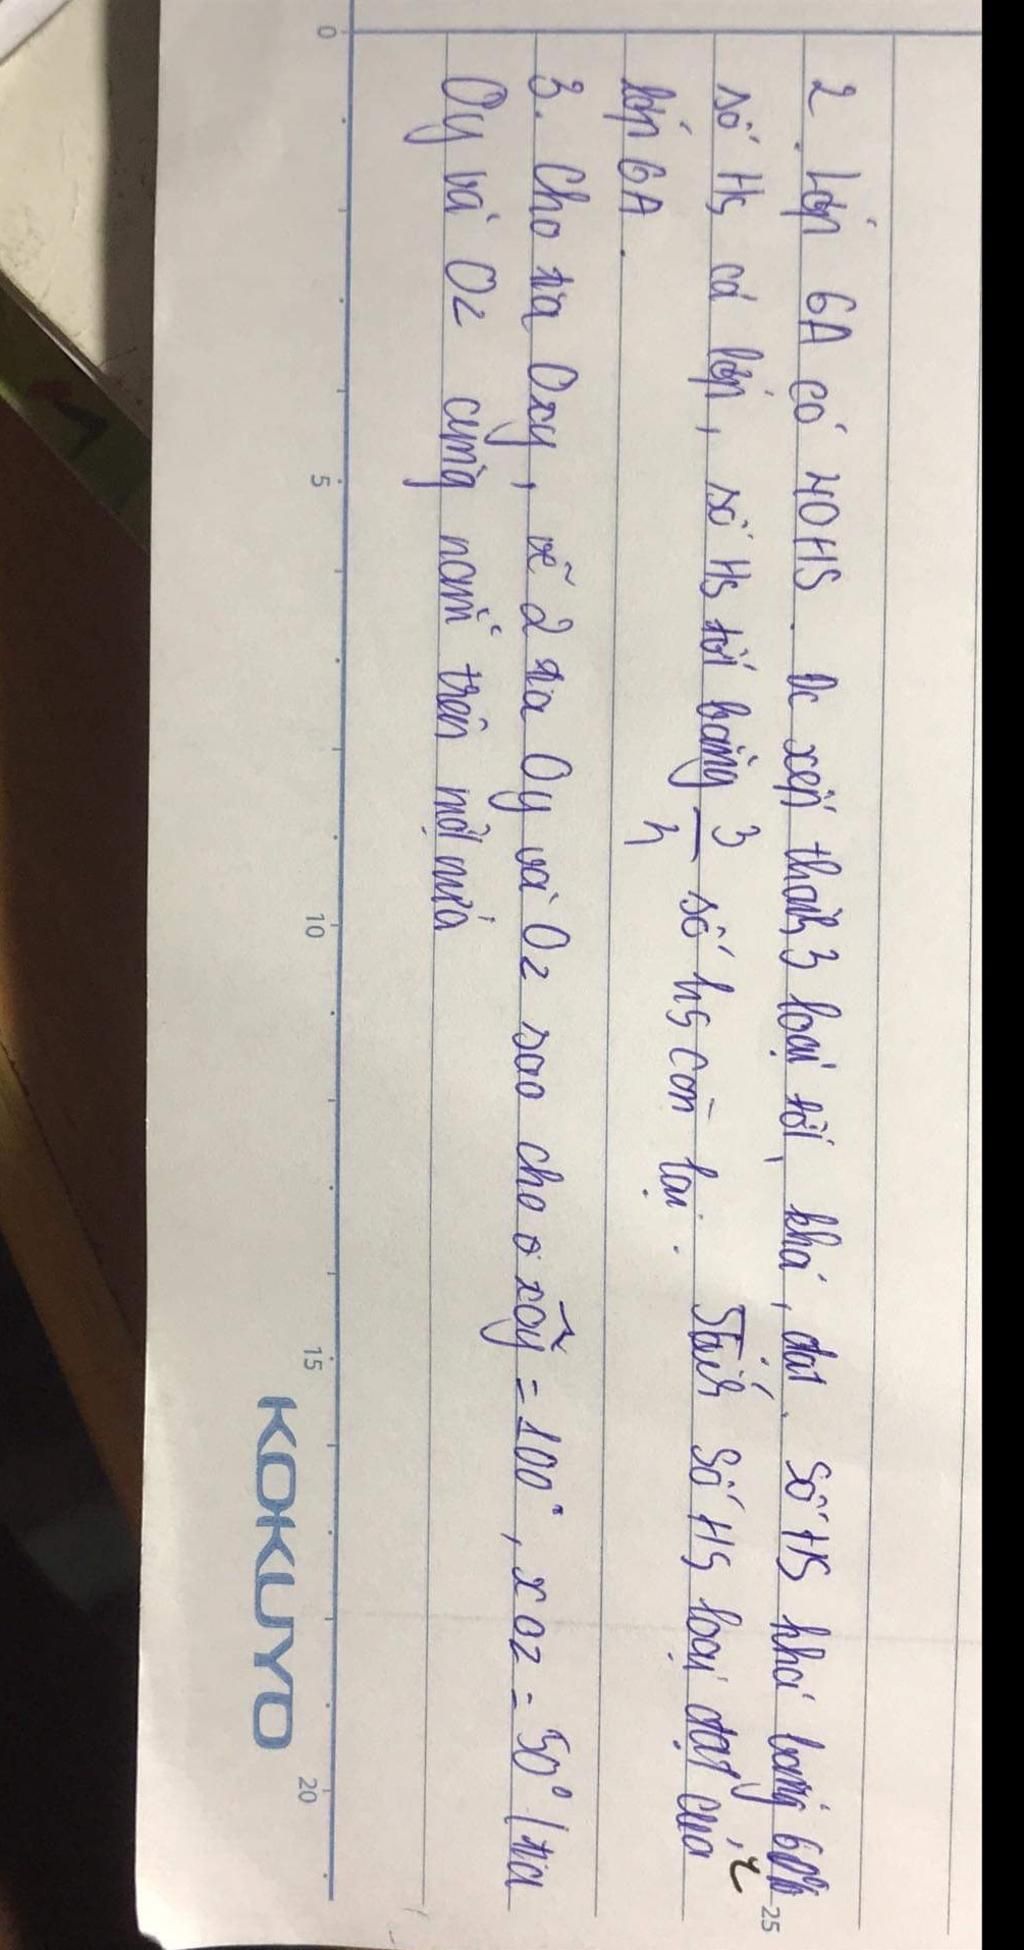 2. Lớp 6A có 40HS. Đc xếp thành 3 loại tốt, khá, đạt. Số HS khá bằng 60%
số Hs cả lớp, số Hs tốt bằng 3/4 số hs còn lại. Tính số HS loại đạt của
lớp 6A.
3. Cho tia Oxy, vẽ 2 tia Oy và Oz sao cho o xÔy = 100°, xoz = 50° (tia
Oy và Oz cùng nằm trên một nửa
0 5 10 15 20 25
KOKUYO